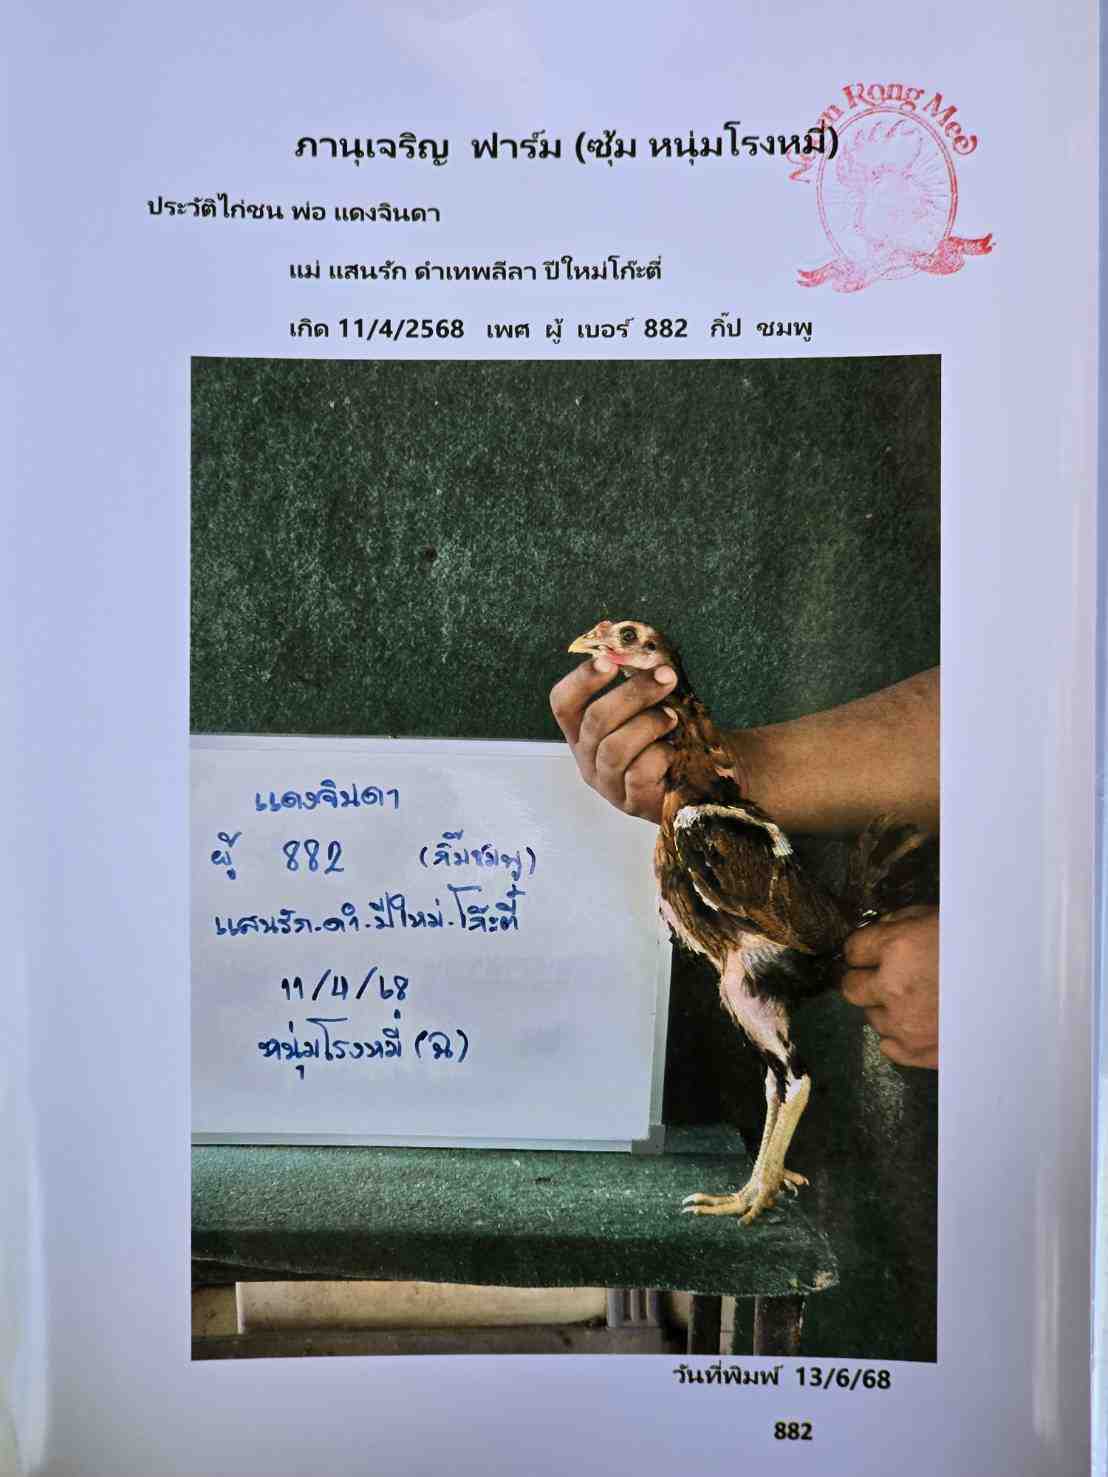 Noom Rong Mee
ภานุเจริญ ฟาร์ม (ซุ้ม หนุ่มโรงหมี่)
ประวัติไก่ชน พ่อ แดงจินดา
แม่ แสนรัก ดำเทพลีลา ปีใหม่โก๊ะตี๋
เกิด 11/4/2568 เพศ ผู้ เบอร์ 882 กิ๊ป ชมพู
แดงจินดา
ผู้ 882 (กิ๊บชมพู)
แสนรัก.ดำ.ปีใหม่.โก๊ะตี๋
11/4/68
หนุ่มโรงหมี่ (ฉ)
วันที่พิมพ์ 13/6/68
882